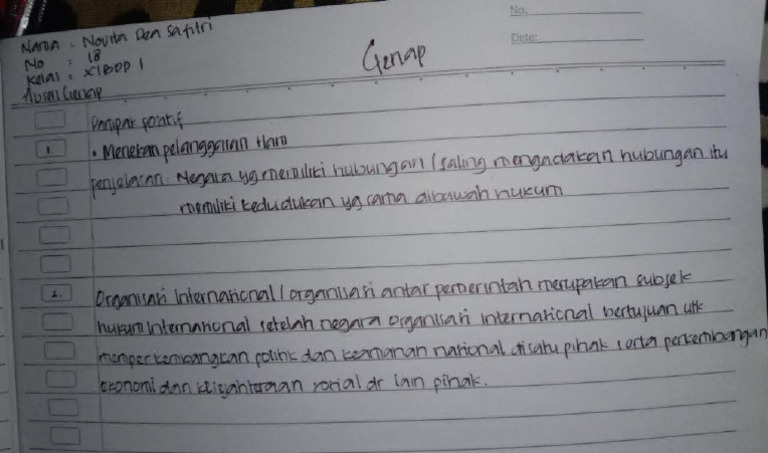 No.
Date:
Nama : Novita Dea Safitri
No : 18
Kelas : XIBDP 1
Absen Genap
Genap
Dampak positif
1. • Menekan pelanggaran Ham
penjelasan: Negara yg memiliki hubungan / saling mengadakan hubungan itu
memiliki kedudukan yg sama dibawah hukum
2. Organisasi International / organisasi antar pemerintah merupakan subjek
hukum international setelah negara organisasi international bertujuan utk
memperkembangkan politik dan keamanan national disatu pihak serta perkembangan
ekonomi dan kesejahteraan sosial dr lain pihak.